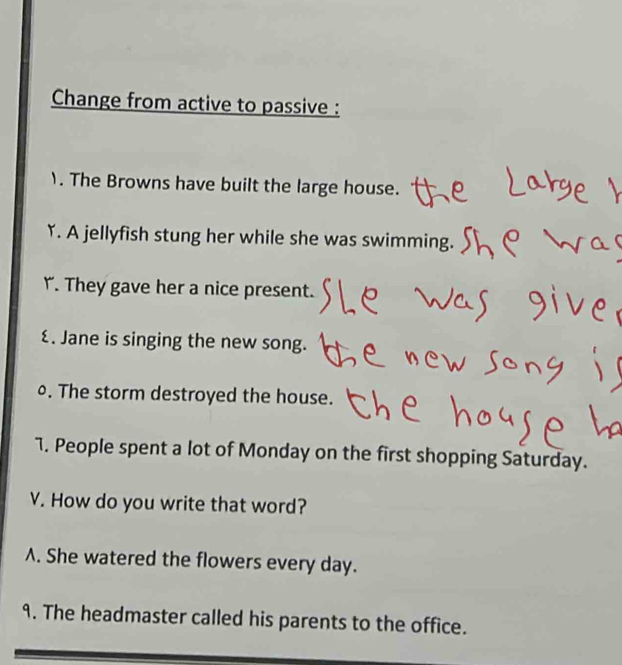 Change from active to passive :
١. The Browns have built the large house. the Large
٢. A jellyfish stung her while she was swimming. She was
٣. They gave her a nice present. She was give
٤. Jane is singing the new song. the new song is
٥. The storm destroyed the house. the house
٦. People spent a lot of Monday on the first shopping Saturday.
٧. How do you write that word?
٨. She watered the flowers every day.
٩. The headmaster called his parents to the office.